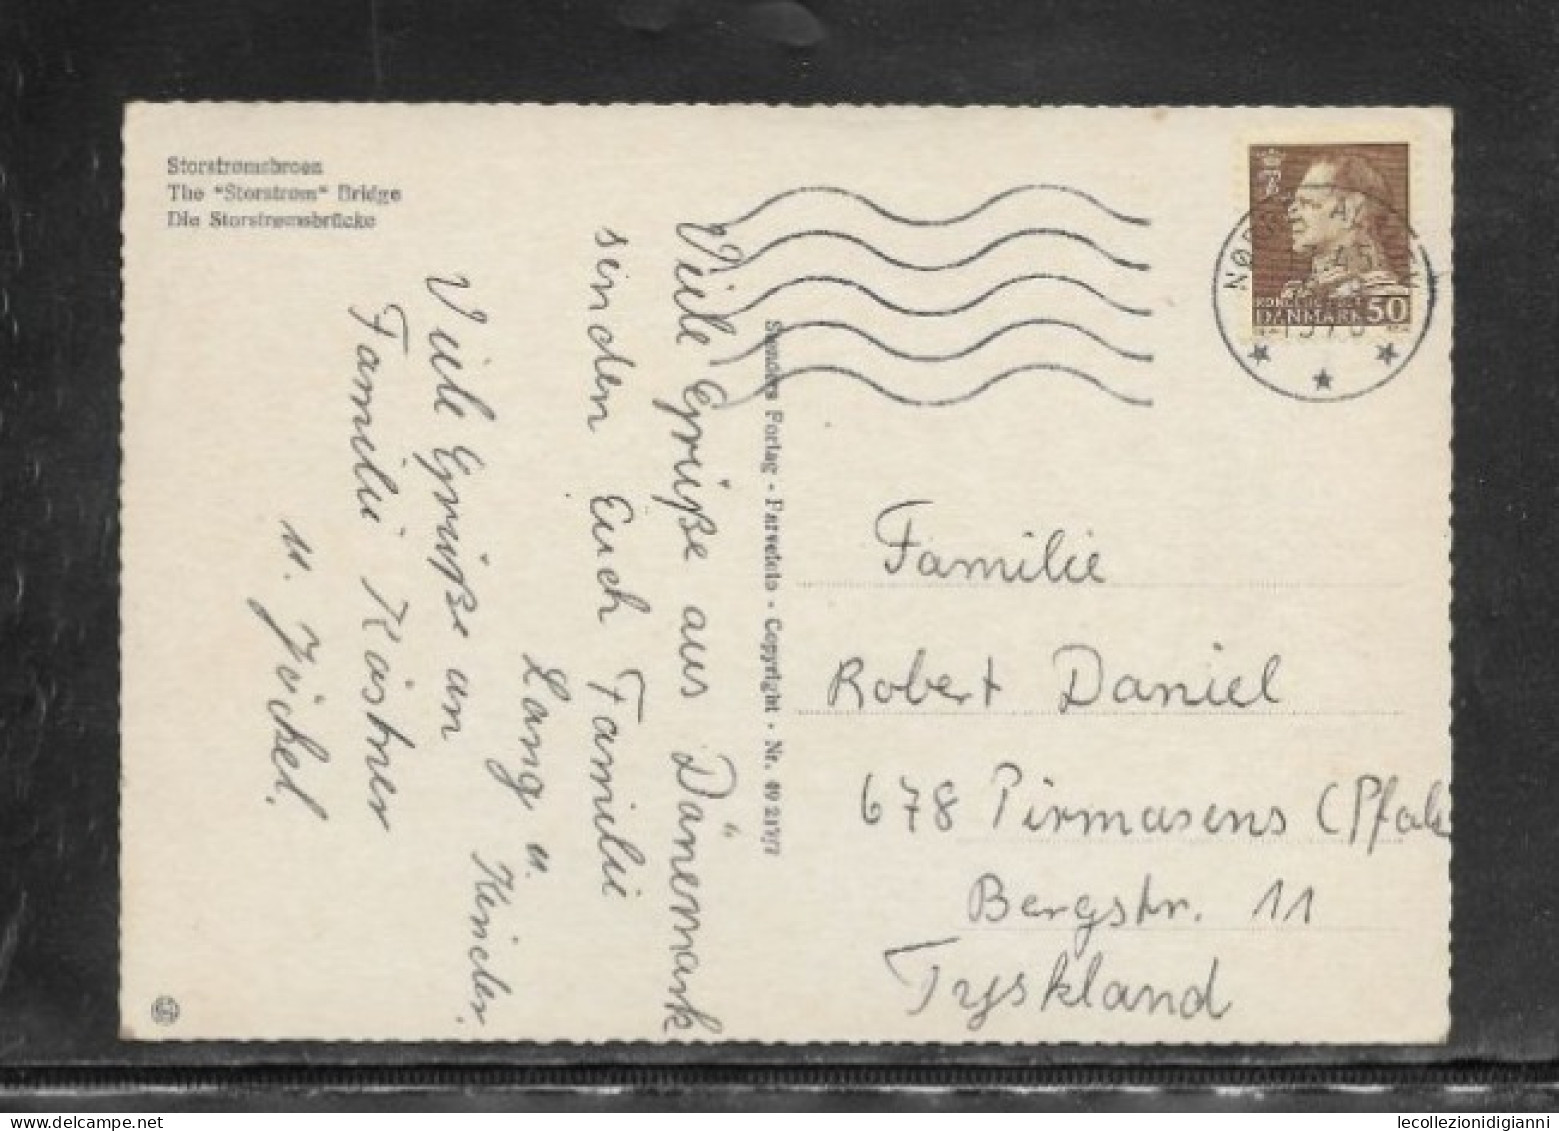 Storstrømsbroen
The "Storstrøm" Bridge
Die Storstrømsbrücke
Viele Grüße aus Dänemark
sinden Euch Familie
Lang u.
Kinder.
Viele Grüße an
Familie Kästner
u. Jöckel.
Stenders Forlag - Farvefoto - Copyright - Nr.
DANMARK 50
Familie
Robert Daniel
678 Pirmasens (Pfalz
Bergstr. 11
Tyskland
lecollezionidigianni